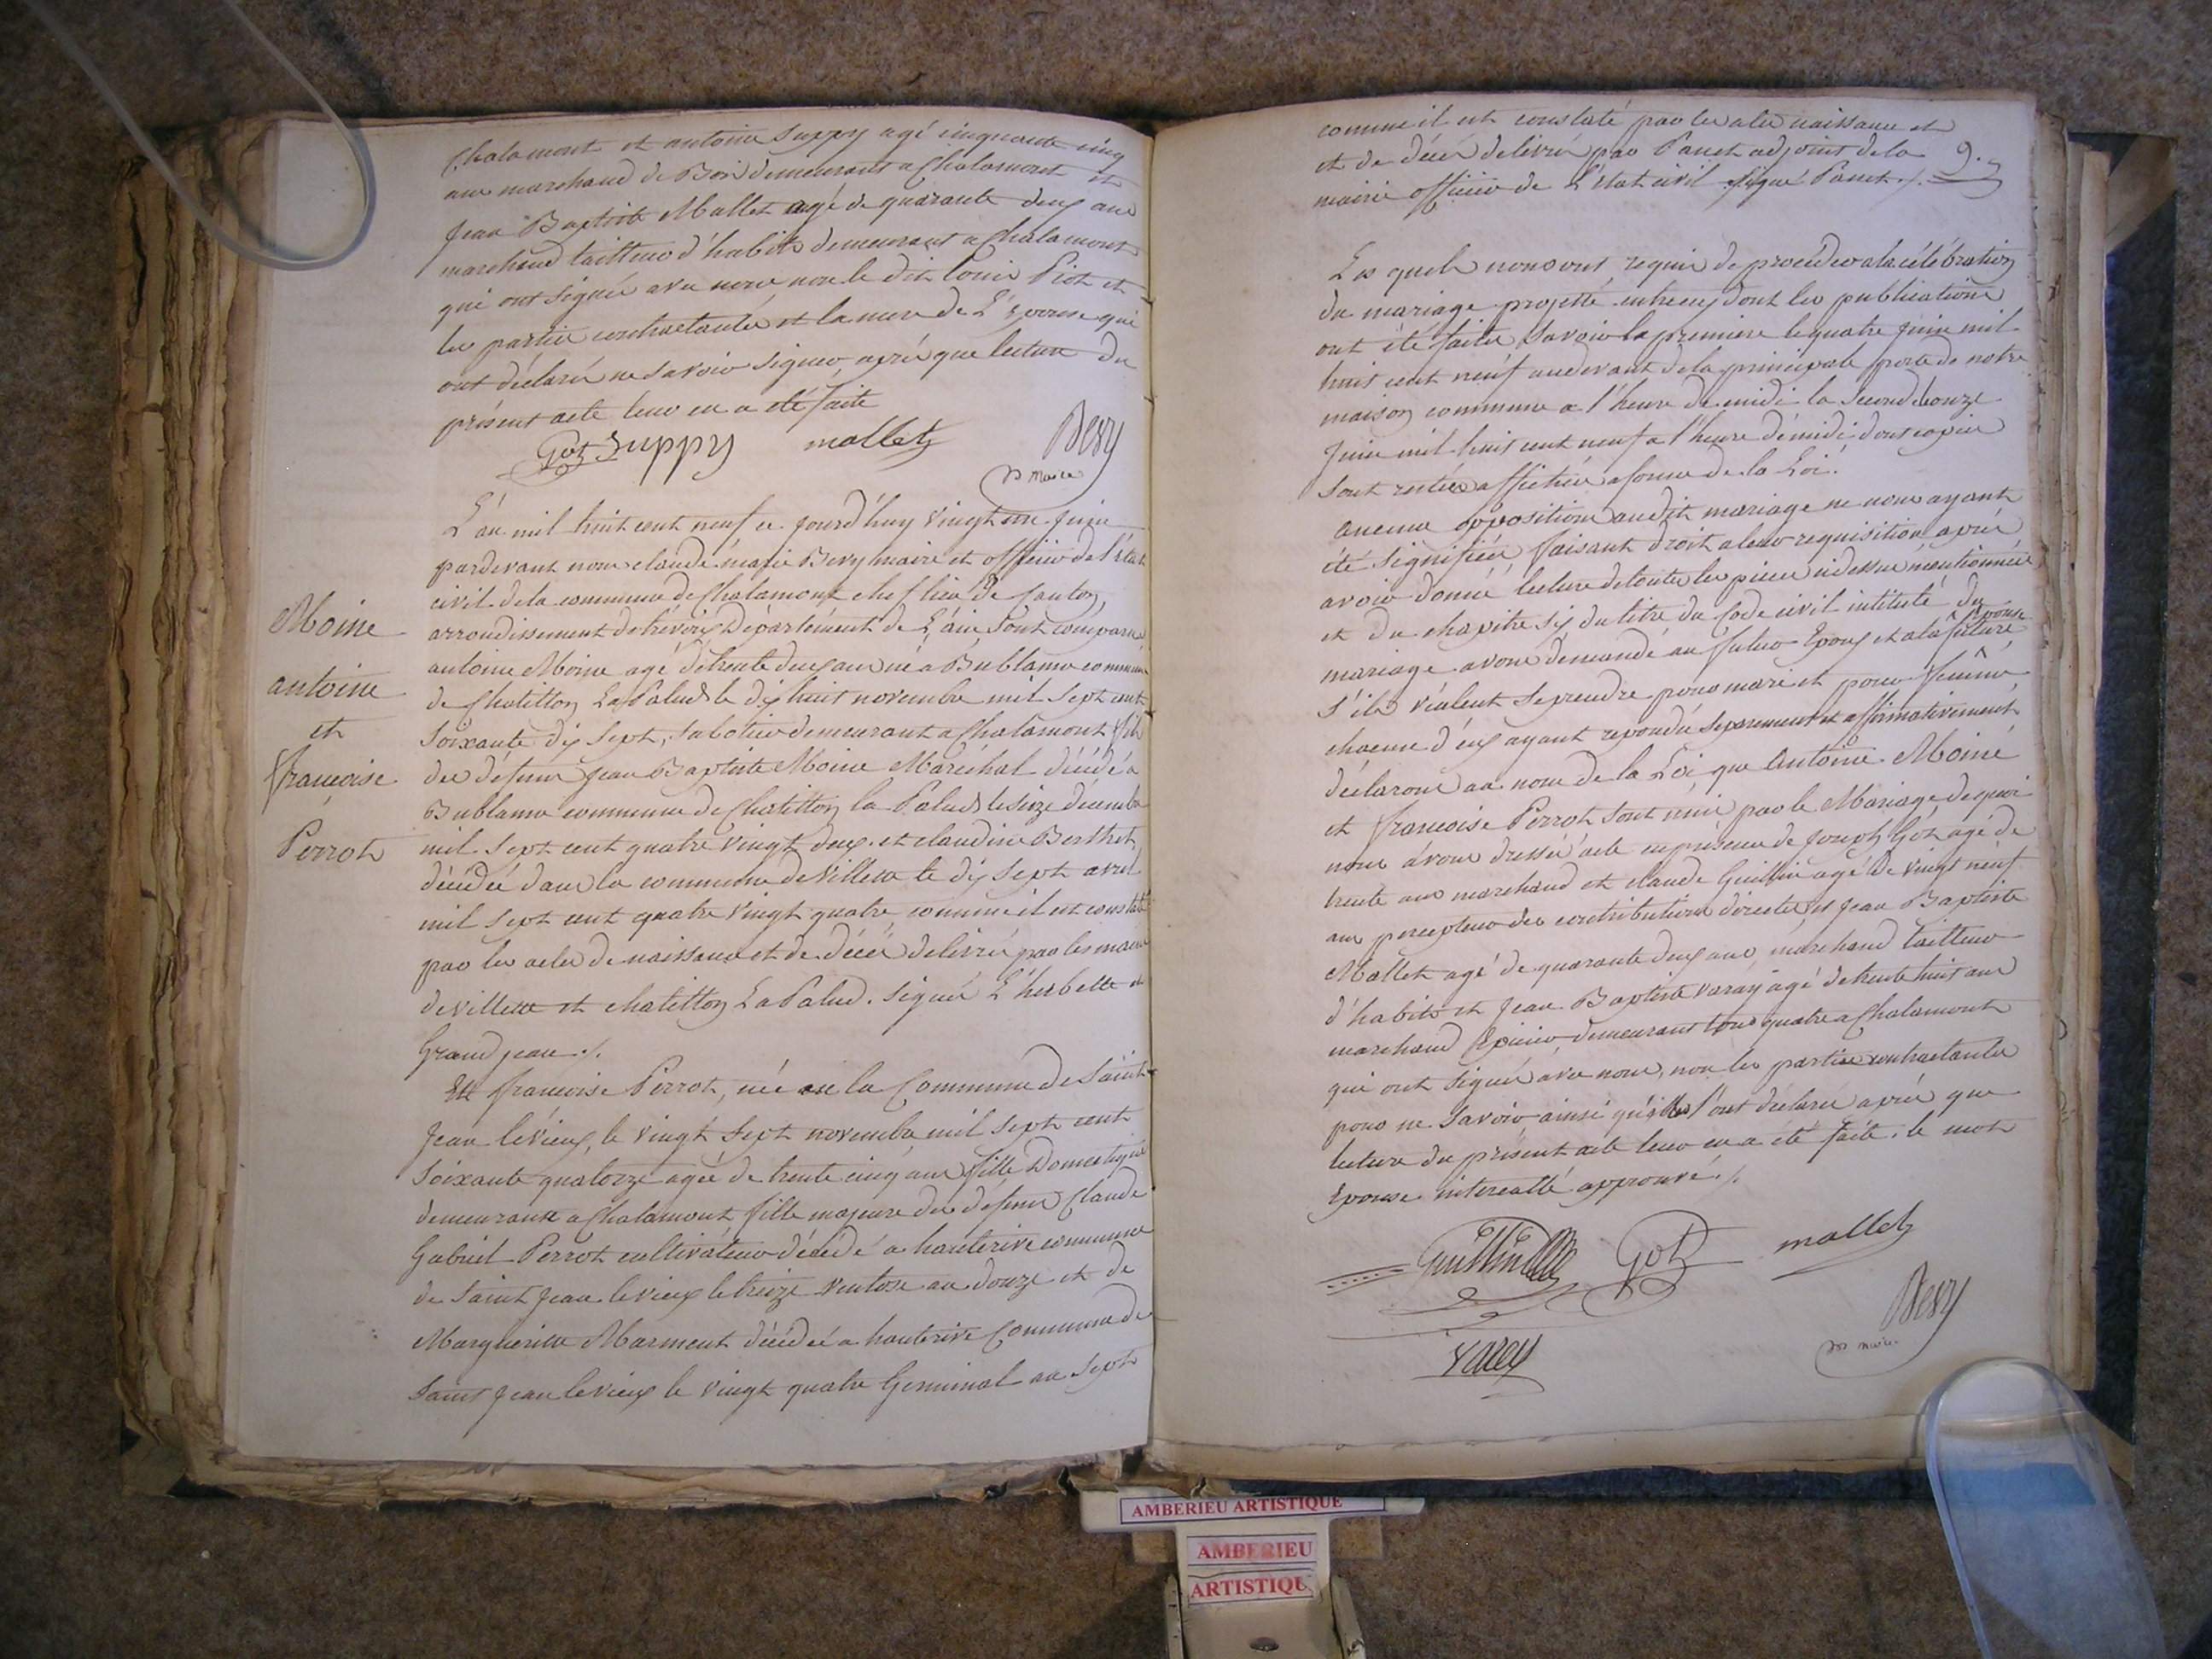 Chalamont et antoine Suppy agé cinquante cinq
ans marchand de Bois demeurants a Chalamont et
Jean Baptiste Mallet agé de quarante deux ans
marchand tailleur d'habits demeurant a Chalamont
qui ont signés avec nous, non le dit Louis Piot et
les parties contractantes et la mere de L'Epouse qui
ont déclaré ne savoir signer, après que lecture du
présent acte leur en a été faite
Got Suppy mallet Bevy
Maire
L'an mil huit cent neuf ce jourd'huy vingt un juin
pardevant nous claude marie Bevy maire et officier de l'état
civil de la commune de Chalamont chef lieu de Canton,
arrondissement de trévoux Département de L'ain sont comparus
antoine Moine agé de trente deux ans né a Bublanne commune
de Chatillon La Palud le dix huit novembre mil sept cent
soixante dix sept, sabotier demeurant a Chalamont fils
des défunts Jean Baptiste Moine Maréchal décédé a
Bublanne commune de Chatillon la Palud le seize décembre
mil sept cent quatre vingt deux et claudine Berthet,
décédée dans la commune de Villette le dix sept avril
mil sept cent quatre vingt quatre comme il est constaté
par les actes de naissance et de décès delivrés par les maires
de villette et chatillon La Palud. signés L'herbette et
Grand jean ./.
Et françoise Perrot, née en la Commune de Saint
Jean le vieux, le vingt sept novembre mil sept cent
soixante quatorze agée de trente cinq ans fille Domestique
demeurant a Chalamont fille majeure des defunts Claude
Gabriel Perrot cultivateur décédé a hauterive commune
de Saint Jean le vieux le treize ventose an douze et de
Margueritte Marment décédée a hauterive Commune de
Saint Jean le vieux le vingt quatre Germinal an sept
Moine
antoine
et
françoise
Perrot
comme il est constaté par les actes naissance et
et de décès delivrés par Panet adjoint de la
mairie officier de L'état civil signé Panet ./.
9.
Les quels nous ont requis de procéder a la célébration
du mariage projetté entre eux dont les publications
ont été faites savoir la premiere le quatre juin mil
huit cent neuf au devant de la principale porte de notre
maison commune a l'heure de midi la seconde le onze
Juin mil huit cent neuf a l'heure de midi dont copies
sont restées affichées a forme de la Loi.
aucune opposition audit mariage ne nous ayant
été signifiée, faisant droit a leur requisition après
avoir donné lecture de toutes les pieces ci dessus mentionnées
et du chapitre six du titre du Code civil intitulé du
Epouse
mariage avons demandé au futur Epoux et a la future
s'ils veulent se prendre pour mari et pour femme
chacune d'eux ayant repondu séparement et affirmativement
déclarons au nom de la Loi que Antoine Moine
et françoise Perrot sont unis par le Mariage de quoi
nous avons dressé acte en présence de Joseph Got agé de
trente ans marchand et claude Guillin agé de vingt neuf
ans percepteur des contributions directes, et Jean Baptiste
Mallet agé de quarante deux ans, marchand tailleur
d'habits et Jean Baptiste Varay agé de trente huit ans
marchand Epicier, demeurant tous quatre a Chalamont
qui ont signés avec nous, non les parties contractantes
pour ne savoir ainsi qu'elles l'ont déclaré après que
lecture du présent acte leur en a été faite. le mot
Epouse intercallé approuvé ./.
Guillin Got mallet
Bevy
Maire
Varey
AMBERIEU ARTISTIQUE
AMBERIEU
ARTISTIQU